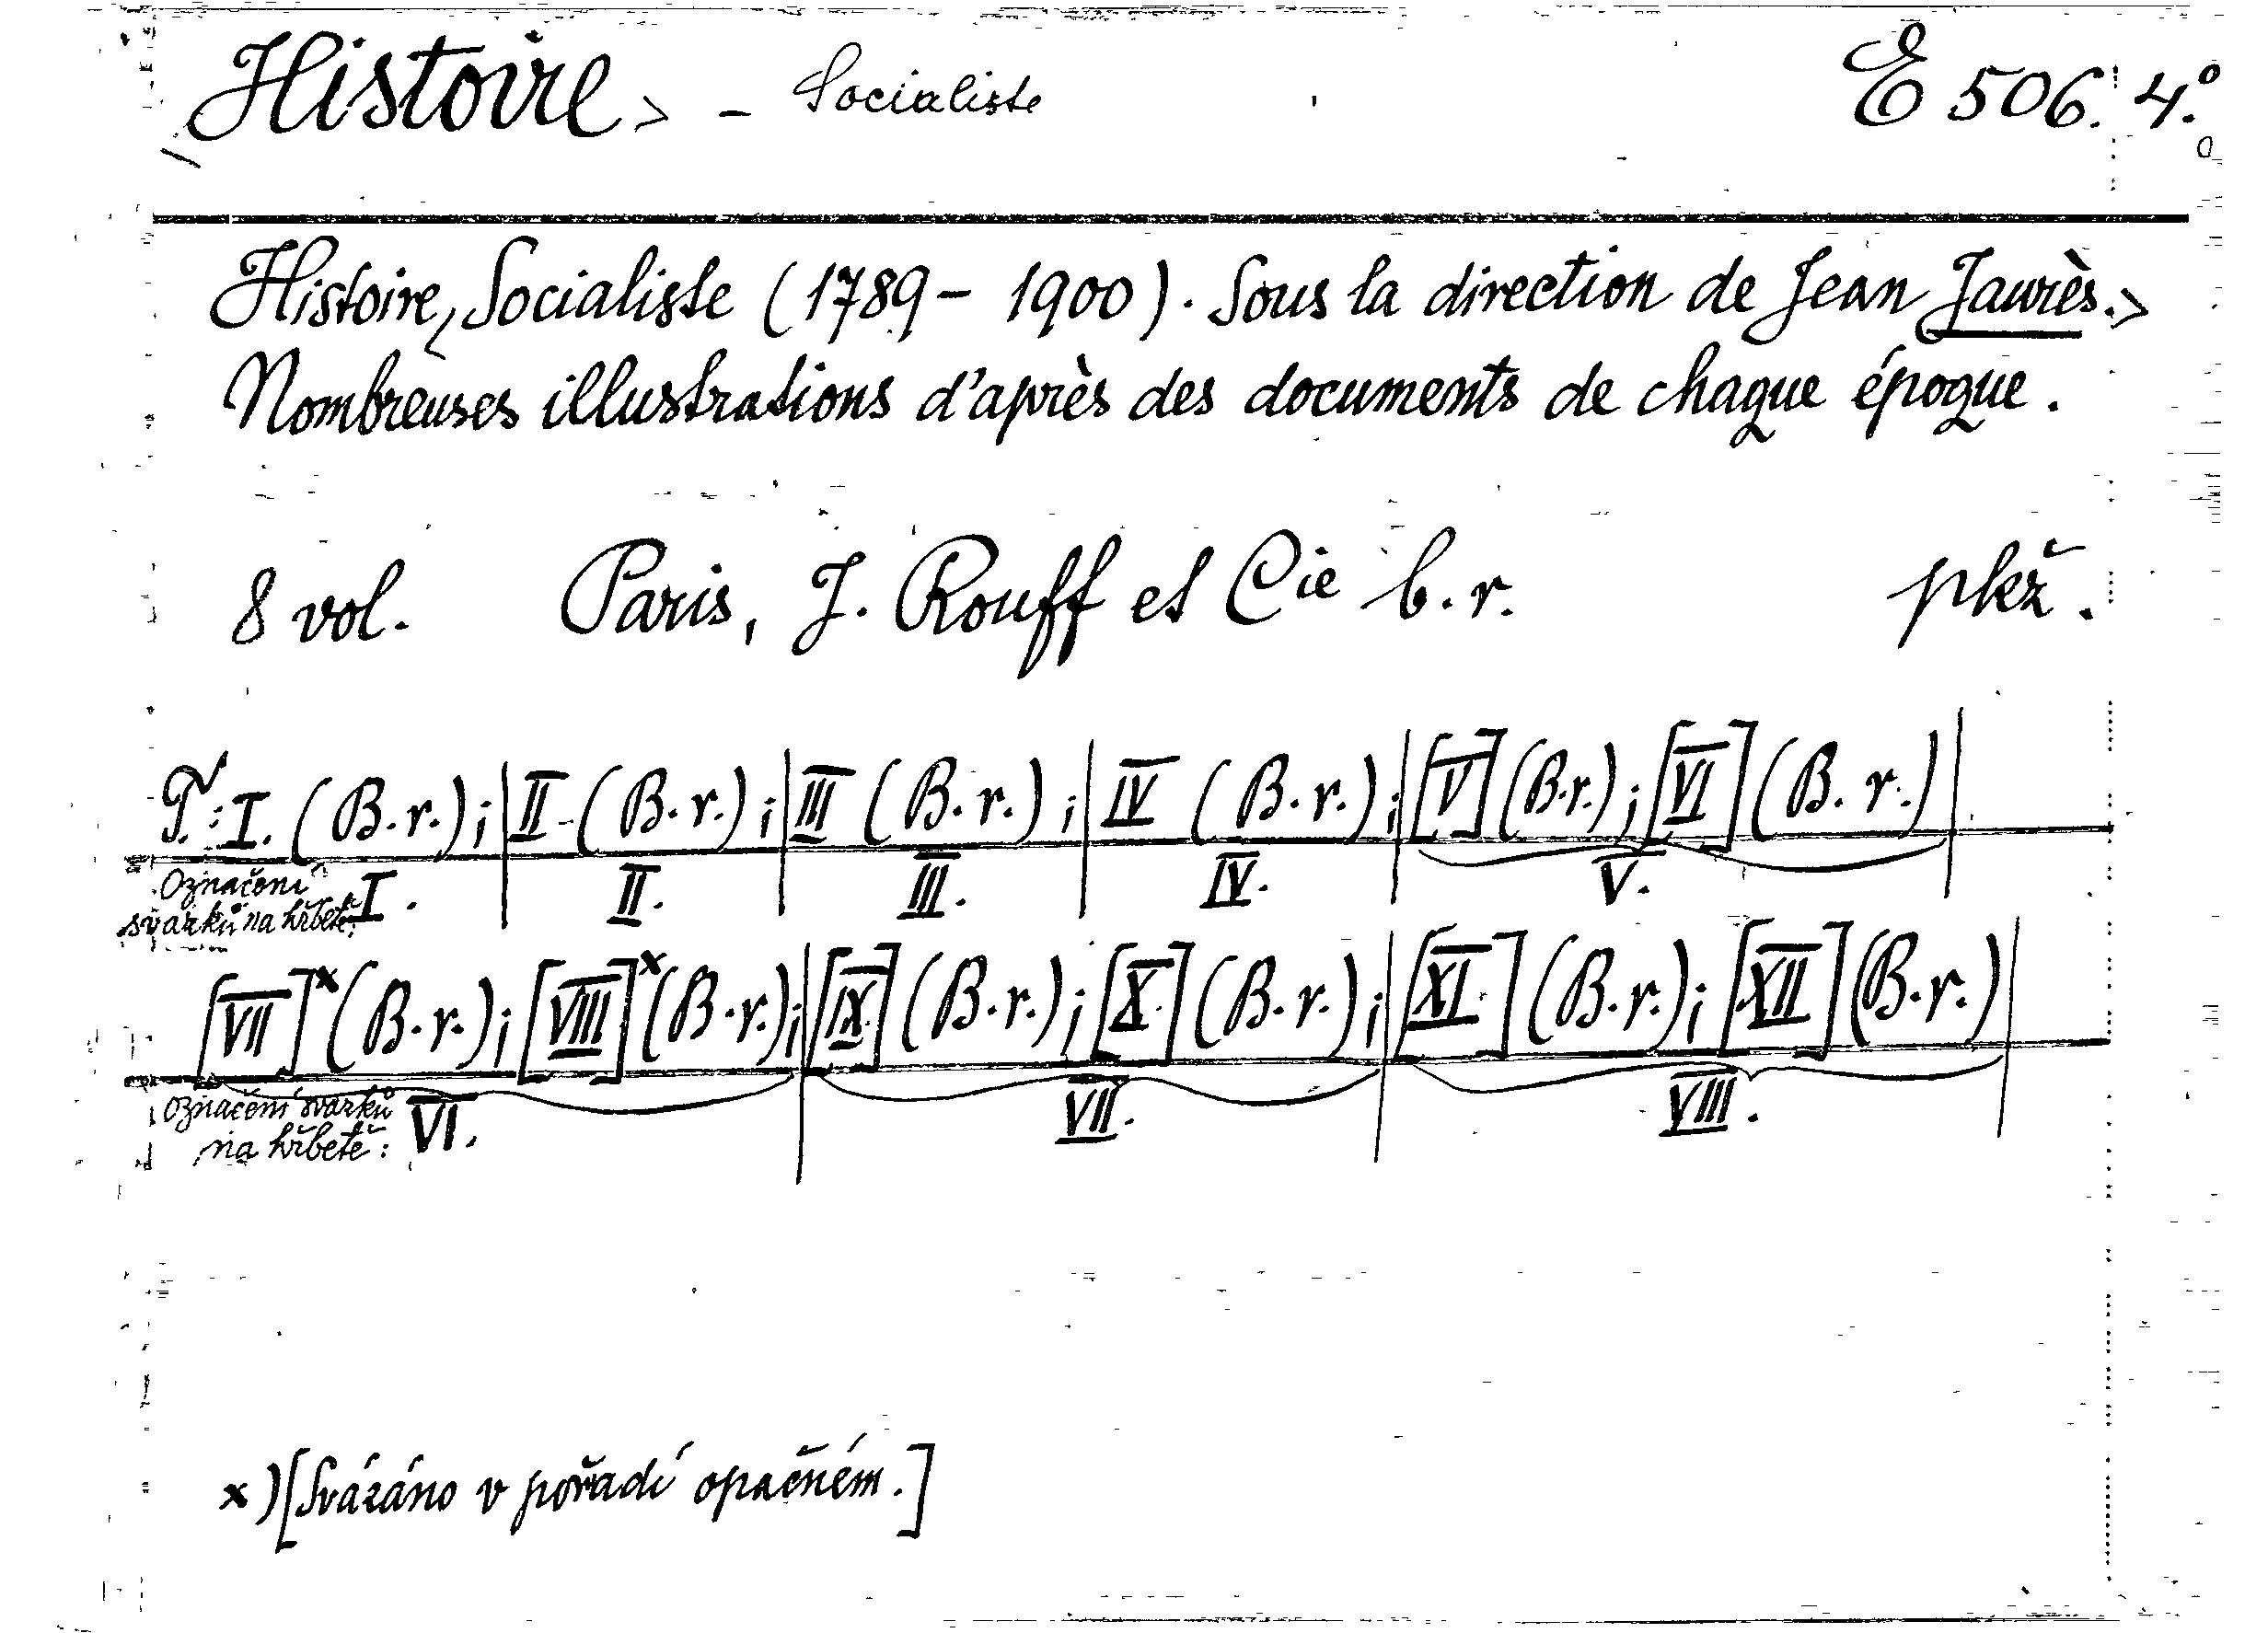 Histoire > - Socialiste E 506. 4.°
Histoire, Socialiste (1789 - 1900). Sous la direction de Jean Jaurès. >
Nombreuses illustrations d'après des documents de chaque époque.
8 vol. Paris, J. Rouff et Cie b. r. pkž.
T.: I. (B. r.); II (B. r.); III (B. r.); IV (B. r.); [V] (B. r.); [VI] (B. r.)
Označení svazků na hřbetě: I. II. III. IV. V.
[VII]x (B. r.); [VIII]x (B. r.); [IX] (B. r.); [X] (B. r.); [XI] (B. r.); [XII] (B. r.)
Označení svazků
na hřbetě: VI. VII. VIII.
x) [Svázáno v pořadí opačném.]